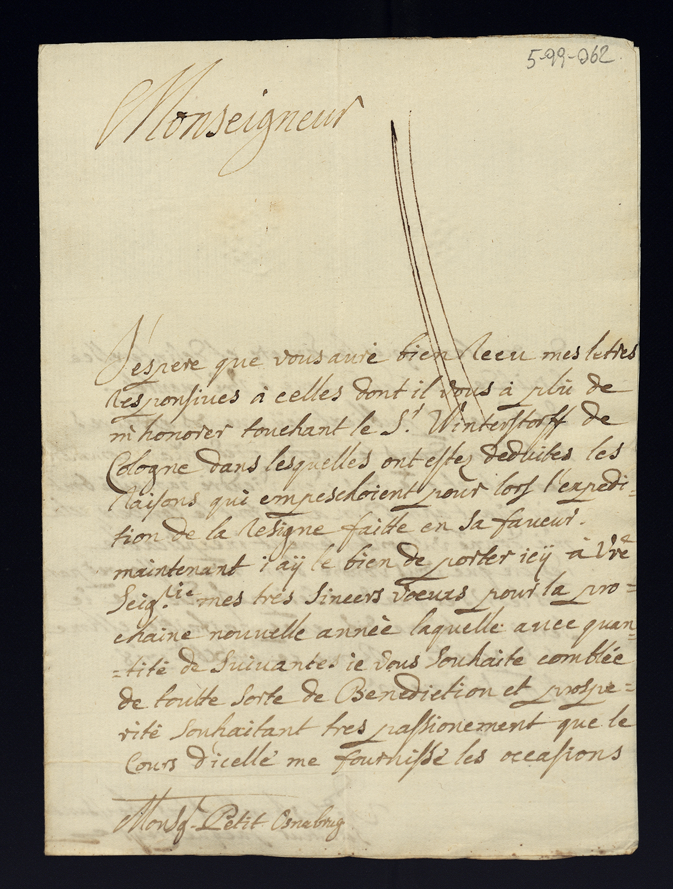 5-99-062
Monseigneur
J'espere que vous aure bien Receu mes letres
Responsiues à celles dont il vous à plû de
m'honorer touchant le S.r Winterstorff de
Cologne dans lesquelles ont estez deduites les
Raisons qui empeschoient pour lors l'expedi=
tion de la Resigne faitte en sa faveur.
maintenant i'aÿ le bien de porter icÿ à Vre
Seig.rie mes trés Sincers voeuxs pour la pro=
chaine nouvelle année laquelle auec quan=
=tité de Suivantes ie vous Souhaite comblée
de toutte Sorte de Benediction et prospe=
rité Souhaitant tres passionement que le
Cours d'icelle me fournisse les occasions
Monsg.r Petit Osnabrug